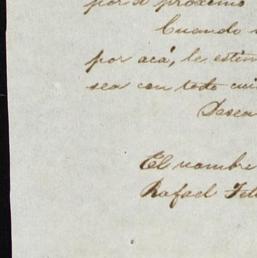 por el próximo
Cuando
por acá, le estim
sea con todo cui
Desea
El nombre
Rafael Fel